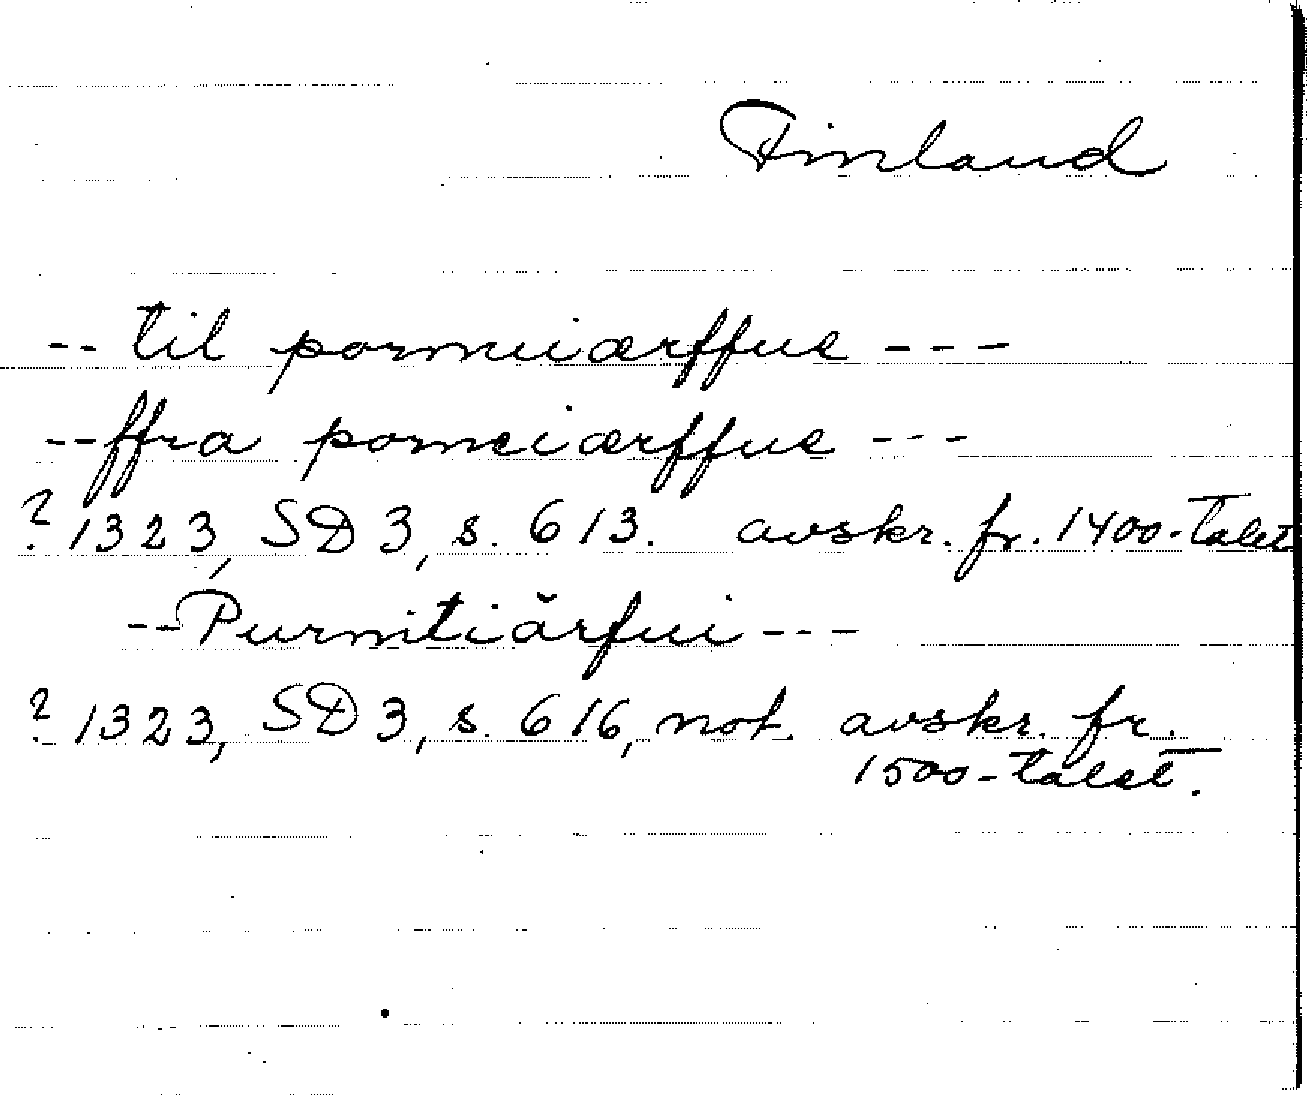 Finland
-- til pormeiærffue ---
-- ffra pomeiærffue ---
? 1323, SD 3, s. 613. avskr. fr. 1400-talet
-- Purnitiärfui ---
? 1323, SD 3, s. 616, not. avskr. fr.
1500-talet.